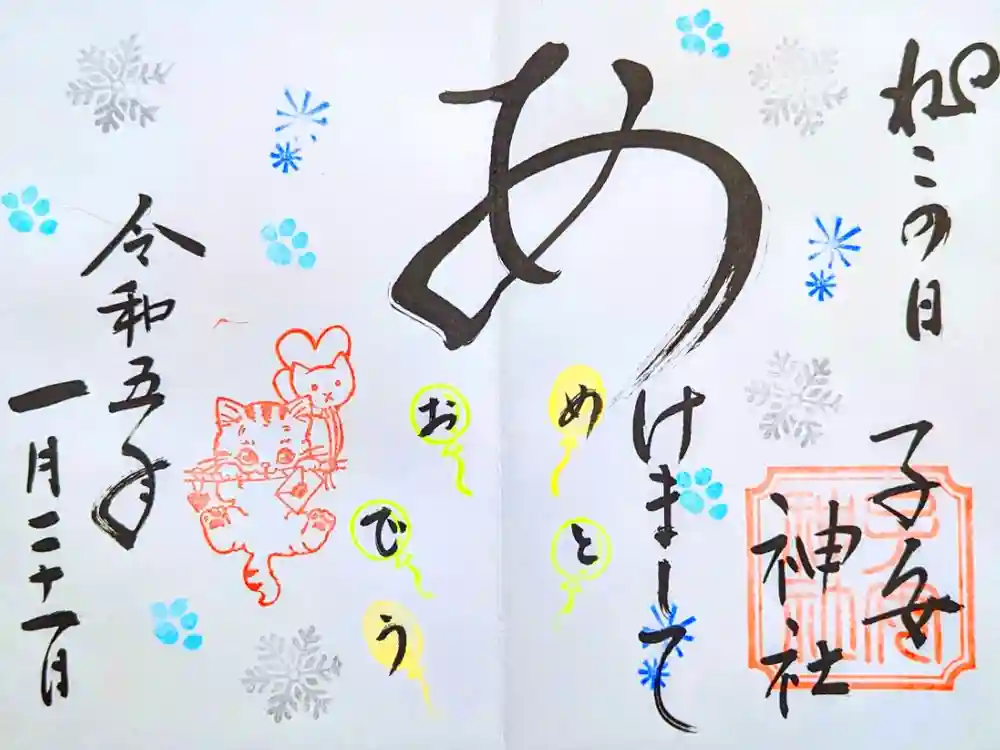 ねこの日
子安
神社
あけまして
おめでとう
令和五年
一月二十一日